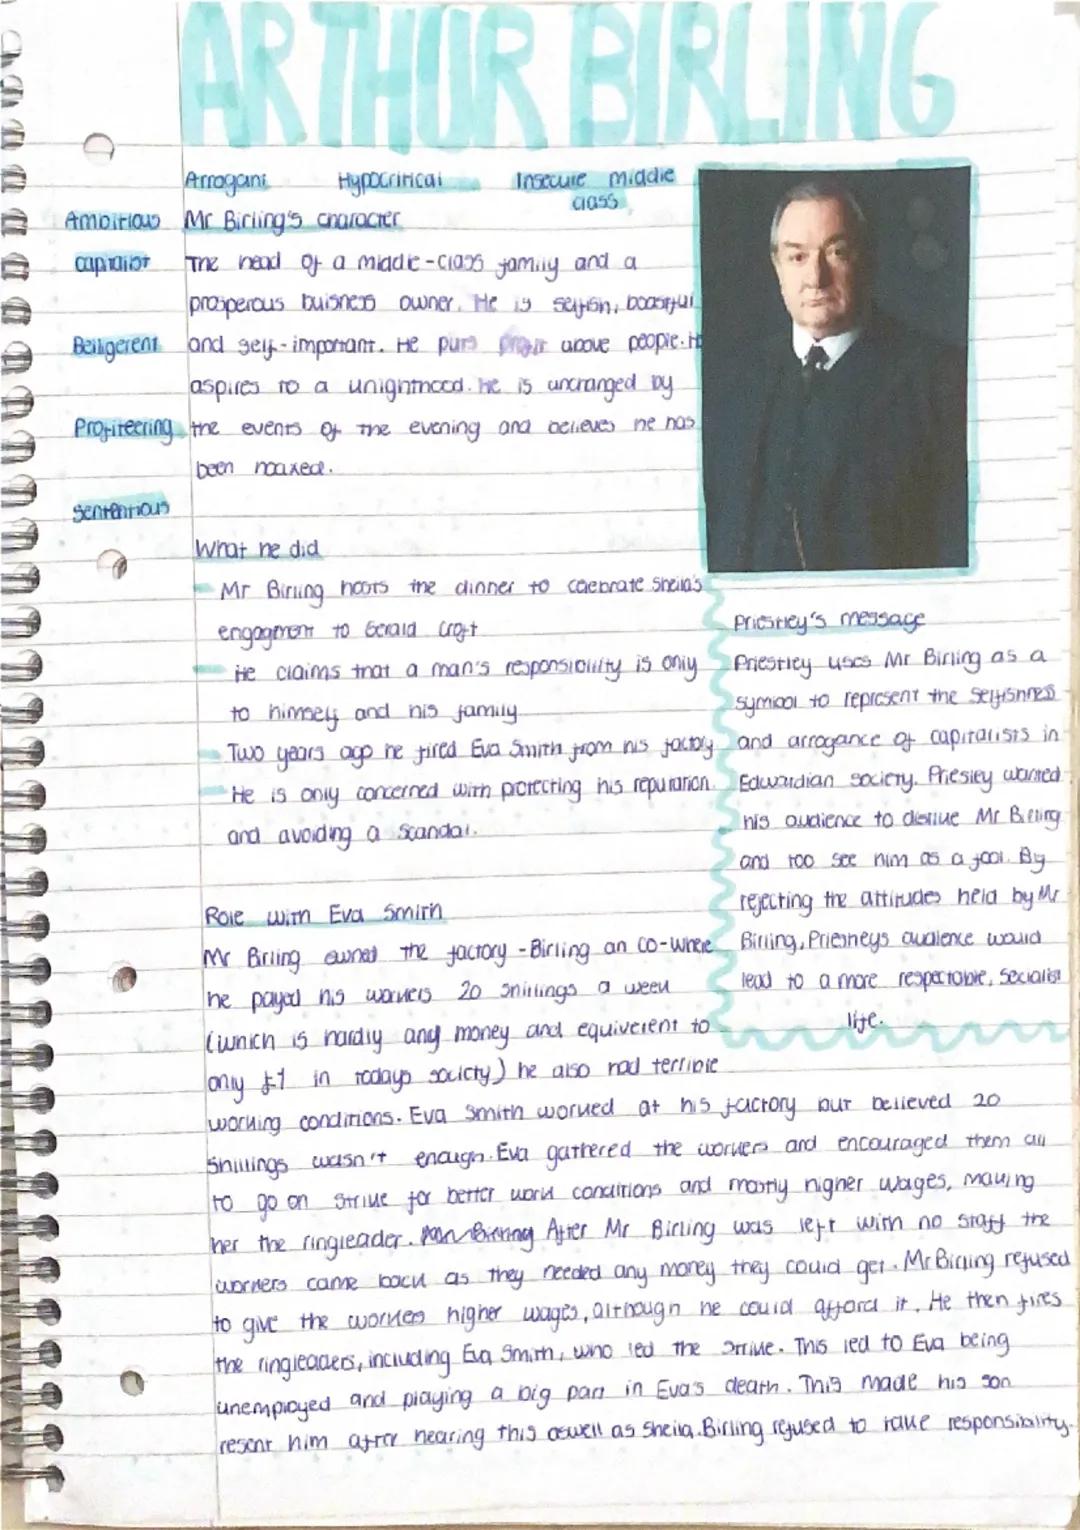 ARTHUR BIRLING
Arrogant Hypocritical Insecure middle class
Ambitious
Capitalist
Belligerent
Profiteering
Sententious
Mr Birling's character
The head of a middle-class family and a
prosperous buisness owner. He is selfish, boastful
and self-important. He puts profit above people. He
aspires to a
he is unchanged by
the events of the evening and believes he has
been hoaxed.
What he did
Mr Birling hosts the dinner to celebrate Sheila's
engagment to Gerald Croft
He claims that a man's responsibility is only
to himself and his family
Two years ago he fired Eva Smith from his factory
He is only concerned with protecting his reputation
and avoiding a scandal.
Priestley's message
Priestley uses Mr Birling as a
symbol to represent the selfishness
and arrogance of capitalists in
Edwardian society. Priesley wanted
his audience to dislike Mr Birling
and too see him as a fool. By
rejecting the attitudes held by Mr
Birling, Priestleys audience would
lead to a more respectable, socialist
life.
Role with Eva Smith
Mr Birling owned the factory - Birling an co - where
he payed his workers 20 shillings a week
(which is hardly any money and equivelent to
only £1 in todays society) he also had terrible
working conditions. Eva Smith worked at his factory but believed 20
shillings wasn't enough. Eva gathered the workers and encouraged them all
to go on strike for better work conditions and mostly higher wages, making
her the ringleader. After Mr Birling was left with no staff the
workers came back as they needed any money they could get. Mr Birling refused
to give the workers higher wages, although he could afford it. He then fires
the ringleaders, including Eva Smith, who led the strike. This led to Eva being
unemployed and playing a big part in Eva's death. This made his son
resent him after hearing this aswell as Sheila. Birling refused to take responsibility.